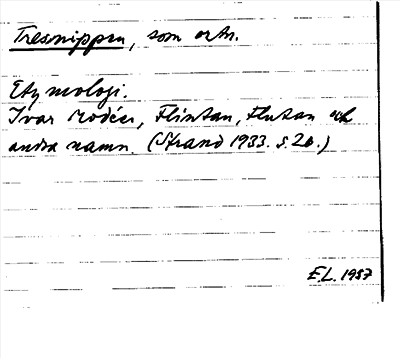 Tresnippen, som ortn.
Etymologi.
Ivar Modéer, Flintan, Flutan och
andra namn. (Strand 1933. S. 26.)
E.L. 1957